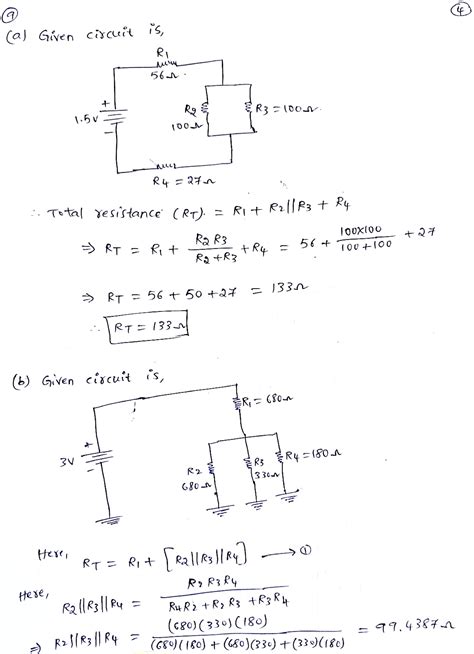 ⑨ ④
(a) Given circuit is,
R1
56Ω
+
1.5V
R2
100Ω
R3 = 100Ω
R4 = 27Ω
∴ Total resistance (RT). = R1 + R2||R3 + R4
⇒ RT = R1 + R2 R3 / R2 + R3 + R4 = 56 + 100×100 / 100+100 + 27
⇒ RT = 56 + 50 + 27 = 133Ω
∴ RT = 133Ω
(b) Given circuit is,
R1 = 680Ω
+
3V
R2
680Ω
R3
330Ω
R4 = 180Ω
Here, RT = R1 + [R2||R3||R4] ⟶ ①
Here, R2||R3||R4 = R2 R3 R4 / R4R2 + R2 R3 + R3R4
⇒ R2||R3||R4 = (680)(330)(180) / (680)(180) + (680)(330) + (330)(180) = 99.4387Ω